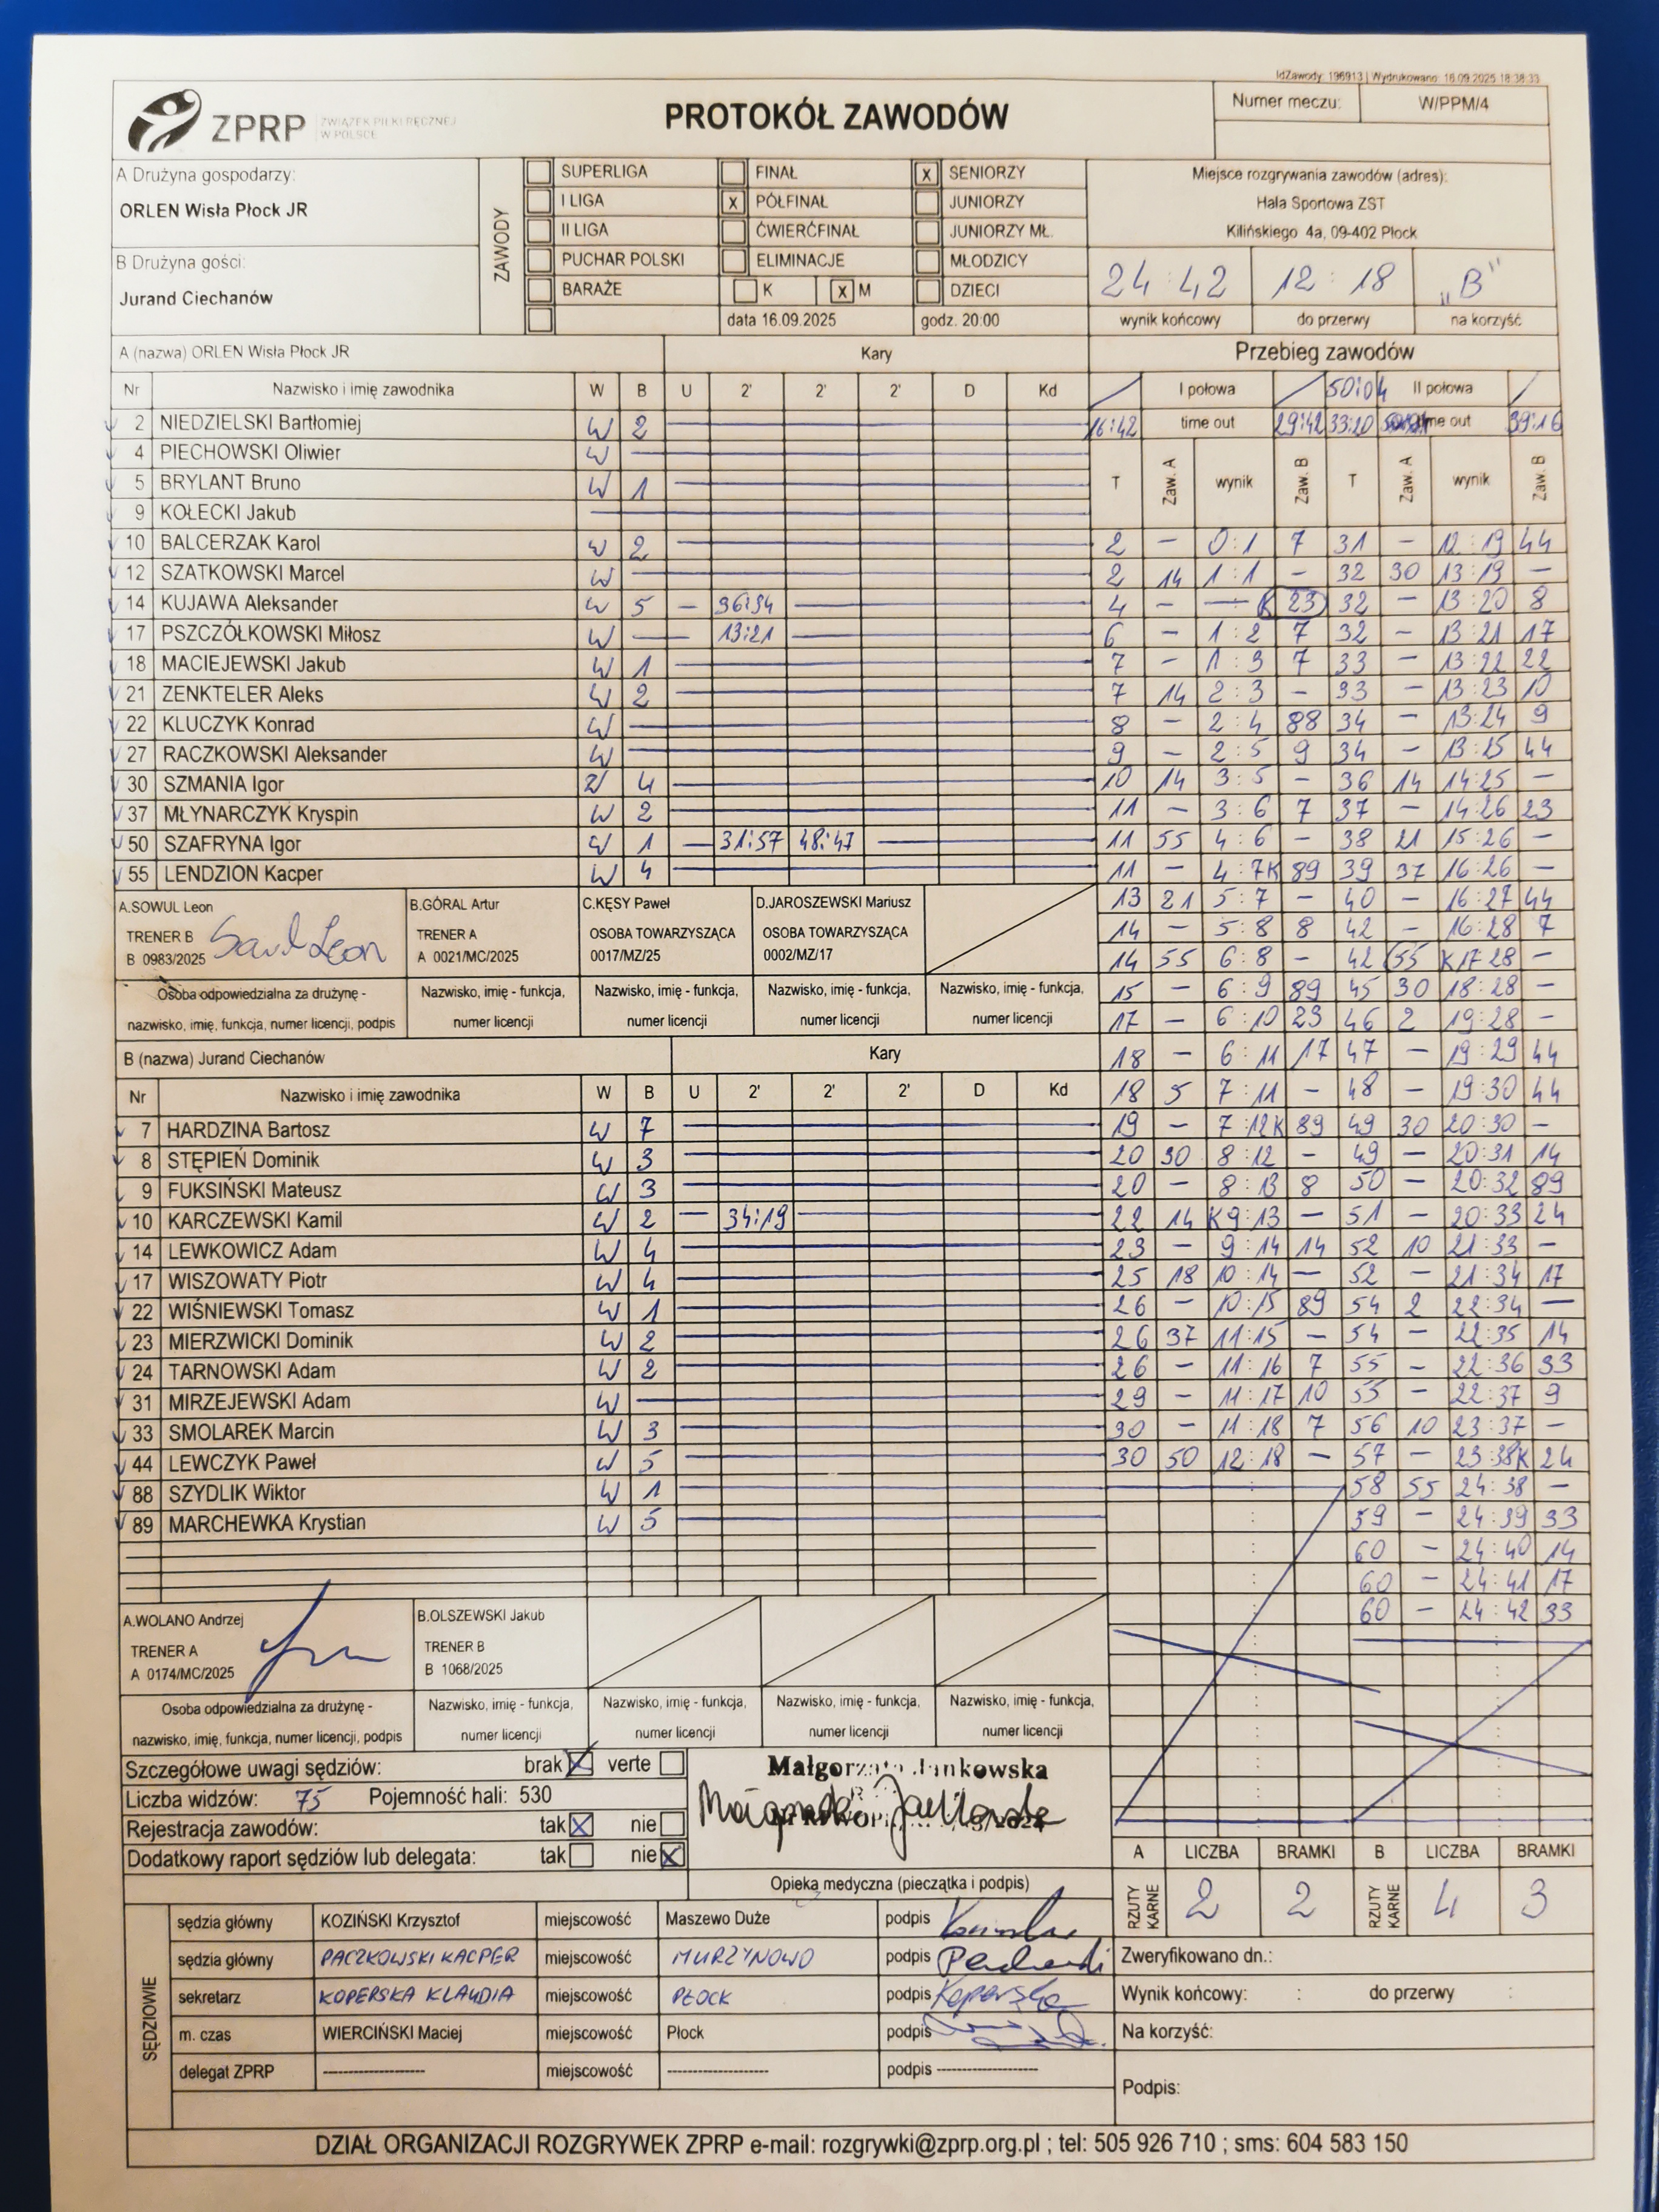 IdZawody: 196913 | Wydrukowano: 16.09.2025 18:38:33
ZPRP ZWIĄZEK PIŁKI RĘCZNEJ W POLSCE
PROTOKÓŁ ZAWODÓW
Numer meczu: W/PPM/4
A Drużyna gospodarzy:
ORLEN Wisła Płock JR
B Drużyna gości:
Jurand Ciechanów
ZAWODY
SUPERLIGA FINAŁ X SENIORZY
I LIGA X PÓŁFINAŁ JUNIORZY
II LIGA ĆWIERĆFINAŁ JUNIORZY MŁ.
PUCHAR POLSKI ELIMINACJE MŁODZICY
BARAŻE K X M DZIECI
data 16.09.2025 godz. 20:00
Miejsce rozgrywania zawodów (adres):
Hala Sportowa ZST
Kilińskiego 4a, 09-402 Płock
24:42 12:18 „B"
wynik końcowy do przerwy na korzyść
A (nazwa) ORLEN Wisła Płock JR Kary
Nr Nazwisko i imię zawodnika W B U 2' 2' 2' D Kd
2 NIEDZIELSKI Bartłomiej W 2
4 PIECHOWSKI Oliwier W
5 BRYLANT Bruno W 1
9 KOŁECKI Jakub
10 BALCERZAK Karol W 2
12 SZATKOWSKI Marcel W
14 KUJAWA Aleksander W 5 - 36:34
17 PSZCZÓŁKOWSKI Miłosz W - 13:21
18 MACIEJEWSKI Jakub W 1
21 ZENKTELER Aleks W 2
22 KLUCZYK Konrad W
27 RACZKOWSKI Aleksander W
30 SZMANIA Igor W 4
37 MŁYNARCZYK Kryspin W 2
50 SZAFRYNA Igor W 1 - 31:57 48:47
55 LENDZION Kacper W 4
A.SOWUL Leon
TRENER B
B 0983/2025 Sowul Leon
B.GÓRAL Artur
TRENER A
A 0021/MC/2025
C.KĘSY Paweł
OSOBA TOWARZYSZĄCA
0017/MZ/25
D.JAROSZEWSKI Mariusz
OSOBA TOWARZYSZĄCA
0002/MZ/17
Osoba odpowiedzialna za drużynę -
nazwisko, imię, funkcja, numer licencji, podpis
Nazwisko, imię - funkcja,
numer licencji
Nazwisko, imię - funkcja,
numer licencji
Nazwisko, imię - funkcja,
numer licencji
Nazwisko, imię - funkcja,
numer licencji
B (nazwa) Jurand Ciechanów Kary
Nr Nazwisko i imię zawodnika W B U 2' 2' 2' D Kd
7 HARDZINA Bartosz W 7
8 STĘPIEŃ Dominik W 3
9 FUKSIŃSKI Mateusz W 3
10 KARCZEWSKI Kamil W 2 - 34:19
14 LEWKOWICZ Adam W 4
17 WISZOWATY Piotr W 4
22 WIŚNIEWSKI Tomasz W 1
23 MIERZWICKI Dominik W 2
24 TARNOWSKI Adam W 2
31 MIRZEJEWSKI Adam W
33 SMOLAREK Marcin W 3
44 LEWCZYK Paweł W 5
88 SZYDLIK Wiktor W 1
89 MARCHEWKA Krystian W 5
A.WOLANO Andrzej
TRENER A
A 0174/MC/2025
B.OLSZEWSKI Jakub
TRENER B
B 1068/2025
Osoba odpowiedzialna za drużynę -
nazwisko, imię, funkcja, numer licencji, podpis
Nazwisko, imię - funkcja,
numer licencji
Nazwisko, imię - funkcja,
numer licencji
Nazwisko, imię - funkcja,
numer licencji
Nazwisko, imię - funkcja,
numer licencji
Przebieg zawodów
I połowa 50:04 II połowa
16:42 time out 29:42 33:20 time out 39:16
T Zaw. A wynik Zaw. B T Zaw. A wynik Zaw. B
2 - 0:1 7 31 - 12:19 44
2 14 1:1 - 32 30 13:19 -
4 - - K 23 32 - 13:20 8
6 - 1:2 7 32 - 13:21 17
7 - 1:3 7 33 - 13:22 22
7 14 2:3 - 33 - 13:23 10
8 - 2:4 88 34 - 13:24 9
9 - 2:5 9 34 - 13:25 44
10 14 3:5 - 36 14 14:25 -
11 - 3:6 7 37 - 14:26 23
11 55 4:6 - 38 21 15:26 -
11 - 4:7K 89 39 37 16:26 -
13 21 5:7 - 40 - 16:27 44
14 - 5:8 8 42 - 16:28 7
14 55 6:8 - 42 55 K17:28 -
15 - 6:9 89 45 30 18:28 -
17 - 6:10 23 46 2 19:28 -
18 - 6:11 17 47 - 19:29 44
18 5 7:11 - 48 - 19:30 44
19 - 7:12K 89 49 30 20:30 -
20 30 8:12 - 49 - 20:31 14
20 - 8:13 8 50 - 20:32 89
22 14 K9:13 - 51 - 20:33 24
23 - 9:14 14 52 10 21:33 -
25 18 10:14 - 52 - 21:34 17
26 - 10:15 89 54 2 22:34 -
26 37 11:15 - 54 - 22:35 14
26 - 11:16 7 55 - 22:36 33
29 - 11:17 10 55 - 22:37 9
30 - 11:18 7 56 10 23:37 -
30 50 12:18 - 57 - 23:38K 24
58 55 24:38 -
59 - 24:39 33
60 - 24:40 14
60 - 24:41 17
60 - 24:42 33
Szczegółowe uwagi sędziów: brak X verte
Liczba widzów: 75 Pojemność hali: 530
Rejestracja zawodów: tak X nie
Dodatkowy raport sędziów lub delegata: tak nie X
Małgorzata Jankowska
Małgorzata Jankowska
Opieka medyczna (pieczątka i podpis)
A LICZBA BRAMKI B LICZBA BRAMKI
RZUTY KARNE 2 2 RZUTY KARNE 4 3
SĘDZIOWIE
sędzia główny KOZIŃSKI Krzysztof miejscowość Maszewo Duże podpis
sędzia główny PACZKOWSKI KACPER miejscowość MURZYNOWO podpis
sekretarz KOPERSKA KLAUDIA miejscowość PŁOCK podpis Koperska
m. czas WIERCIŃSKI Maciej miejscowość Płock podpis
delegat ZPRP ------------------- miejscowość ------------------- podpis -------------------
Zweryfikowano dn.:
Wynik końcowy: : do przerwy :
Na korzyść:
Podpis:
DZIAŁ ORGANIZACJI ROZGRYWEK ZPRP e-mail: rozgrywki@zprp.org.pl ; tel: 505 926 710 ; sms: 604 583 150